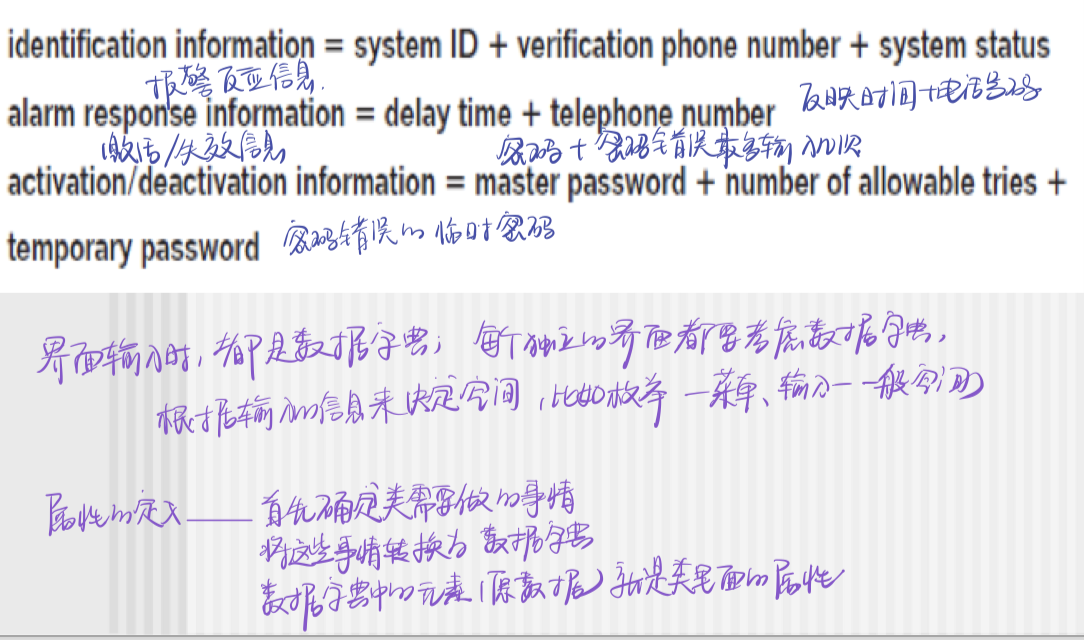 identification information = system ID + verification phone number + system status
报警反应信息.
alarm response information = delay time + telephone number
反映时间+电话号码
激活/失效信息
密码 + 密码错误最多输入几次
activation/deactivation information = master password + number of allowable tries +
temporary password
密码错误的临时密码
界面输入时,都是数据字典; 每个独立的界面都要考虑数据字典,
根据输入的信息来决定空间,比如枚举—菜单、输入—一般空间)
属性的定义——首先确定类需要做的事情
将这些事情转换为数据字典
数据字典中的元素(原数据)就是类里面的属性